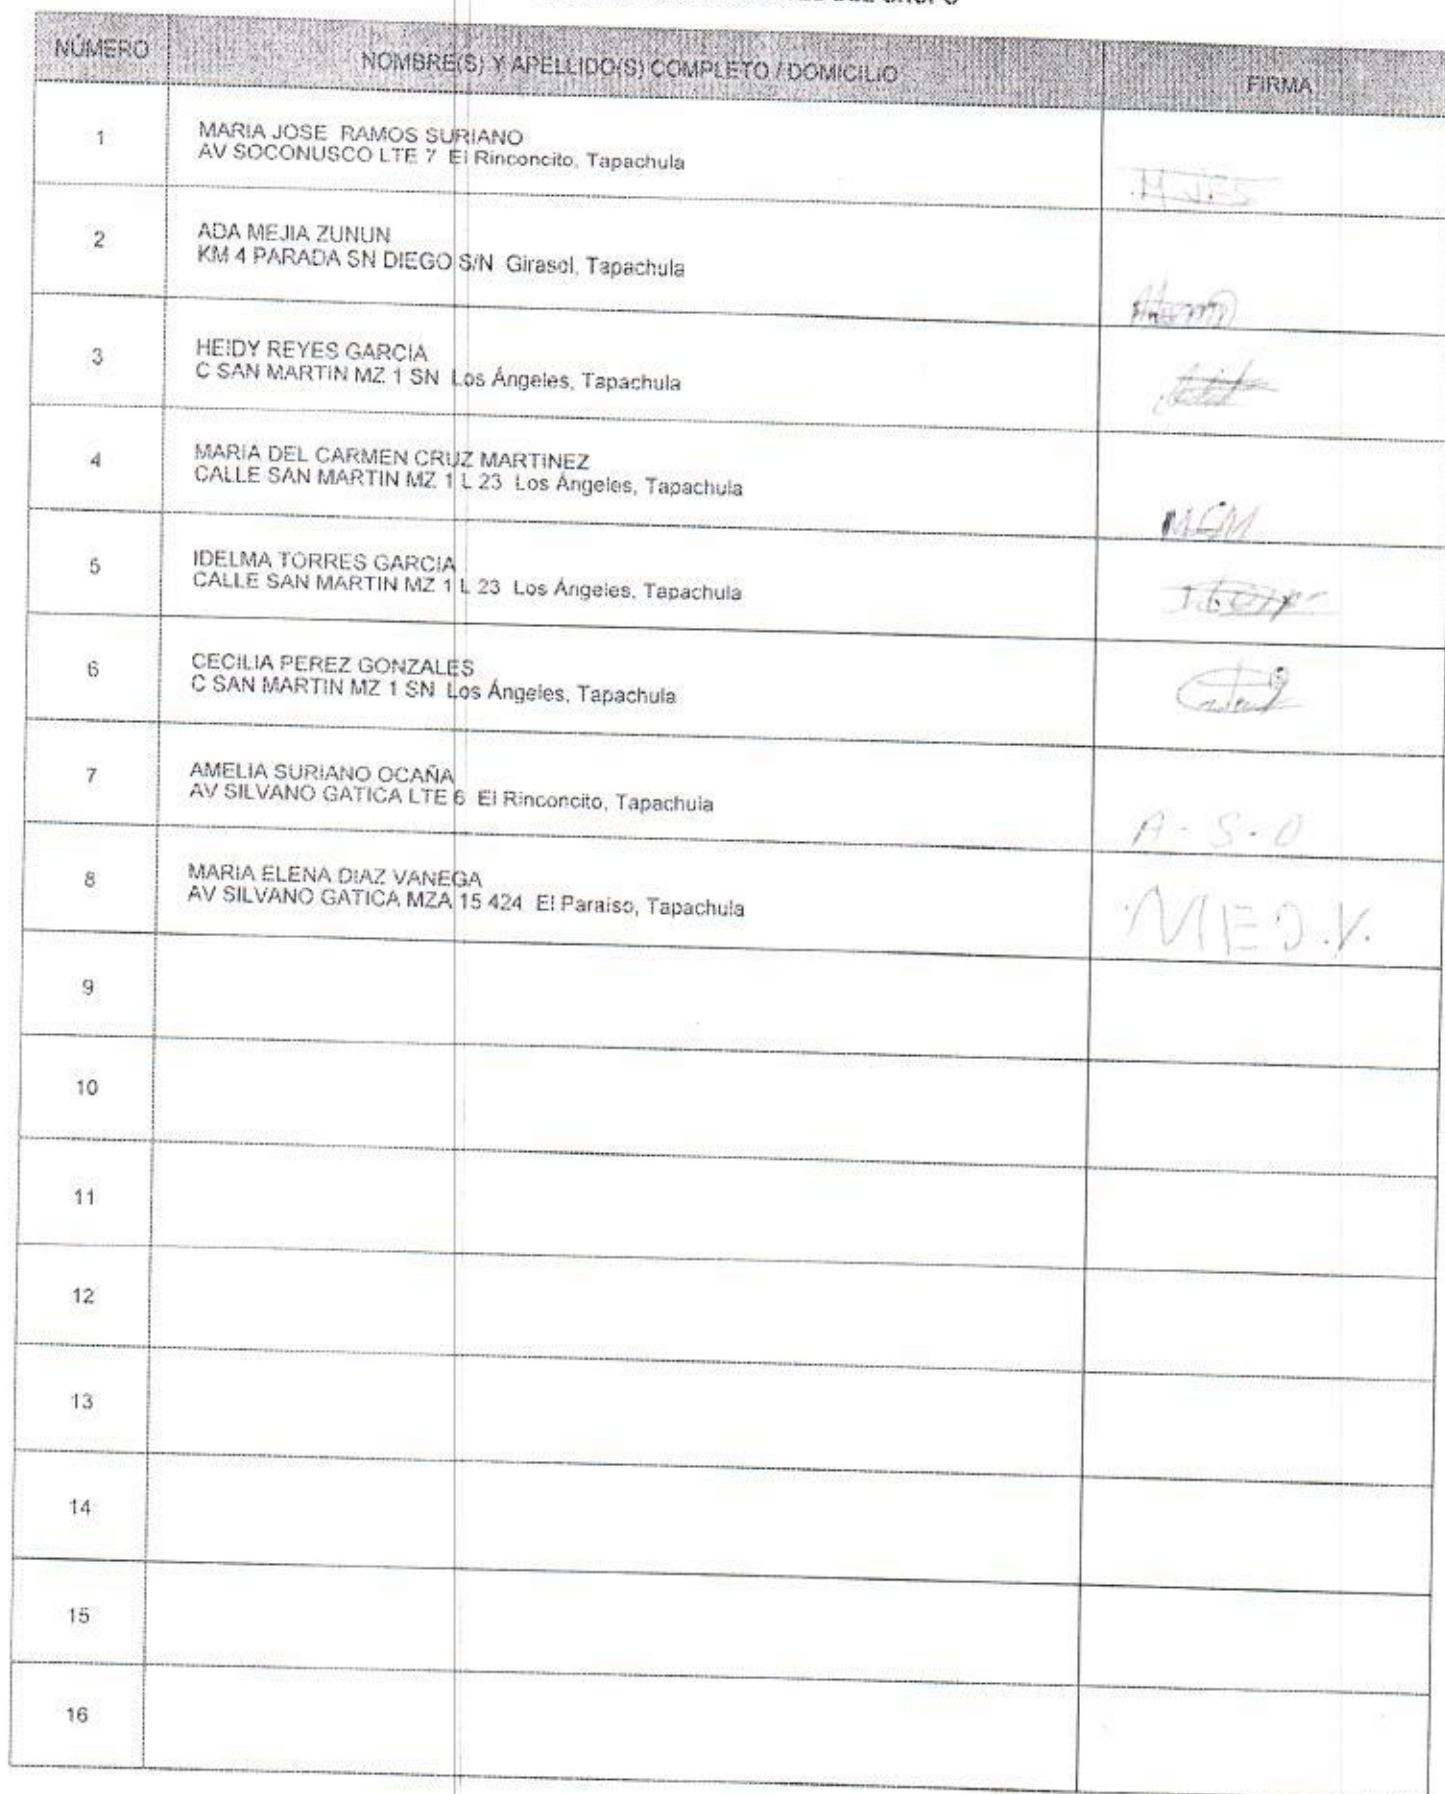 DEL GRUPO
NÚMERO NOMBRE(S) Y APELLIDO(S) COMPLETO / DOMICILIO FIRMA
1 MARIA JOSE RAMOS SURIANO
AV SOCONUSCO LTE 7 El Rinconcito, Tapachula
2 ADA MEJIA ZUNUN
KM 4 PARADA SN DIEGO S/N Girasol, Tapachula
3 HEIDY REYES GARCIA
C SAN MARTIN MZ 1 SN Los Ángeles, Tapachula
4 MARIA DEL CARMEN CRUZ MARTINEZ
CALLE SAN MARTIN MZ 1 L 23 Los Ángeles, Tapachula
MCM
5 IDELMA TORRES GARCIA
CALLE SAN MARTIN MZ 1 L 23 Los Ángeles, Tapachula
6 CECILIA PEREZ GONZALES
C SAN MARTIN MZ 1 SN Los Ángeles, Tapachula
7 AMELIA SURIANO OCAÑA
AV SILVANO GATICA LTE 6 El Rinconcito, Tapachula
A-S-O
8 MARIA ELENA DIAZ VANEGA
AV SILVANO GATICA MZA 15 424 El Paraíso, Tapachula
MED.V.
9
10
11
12
13
14
15
16